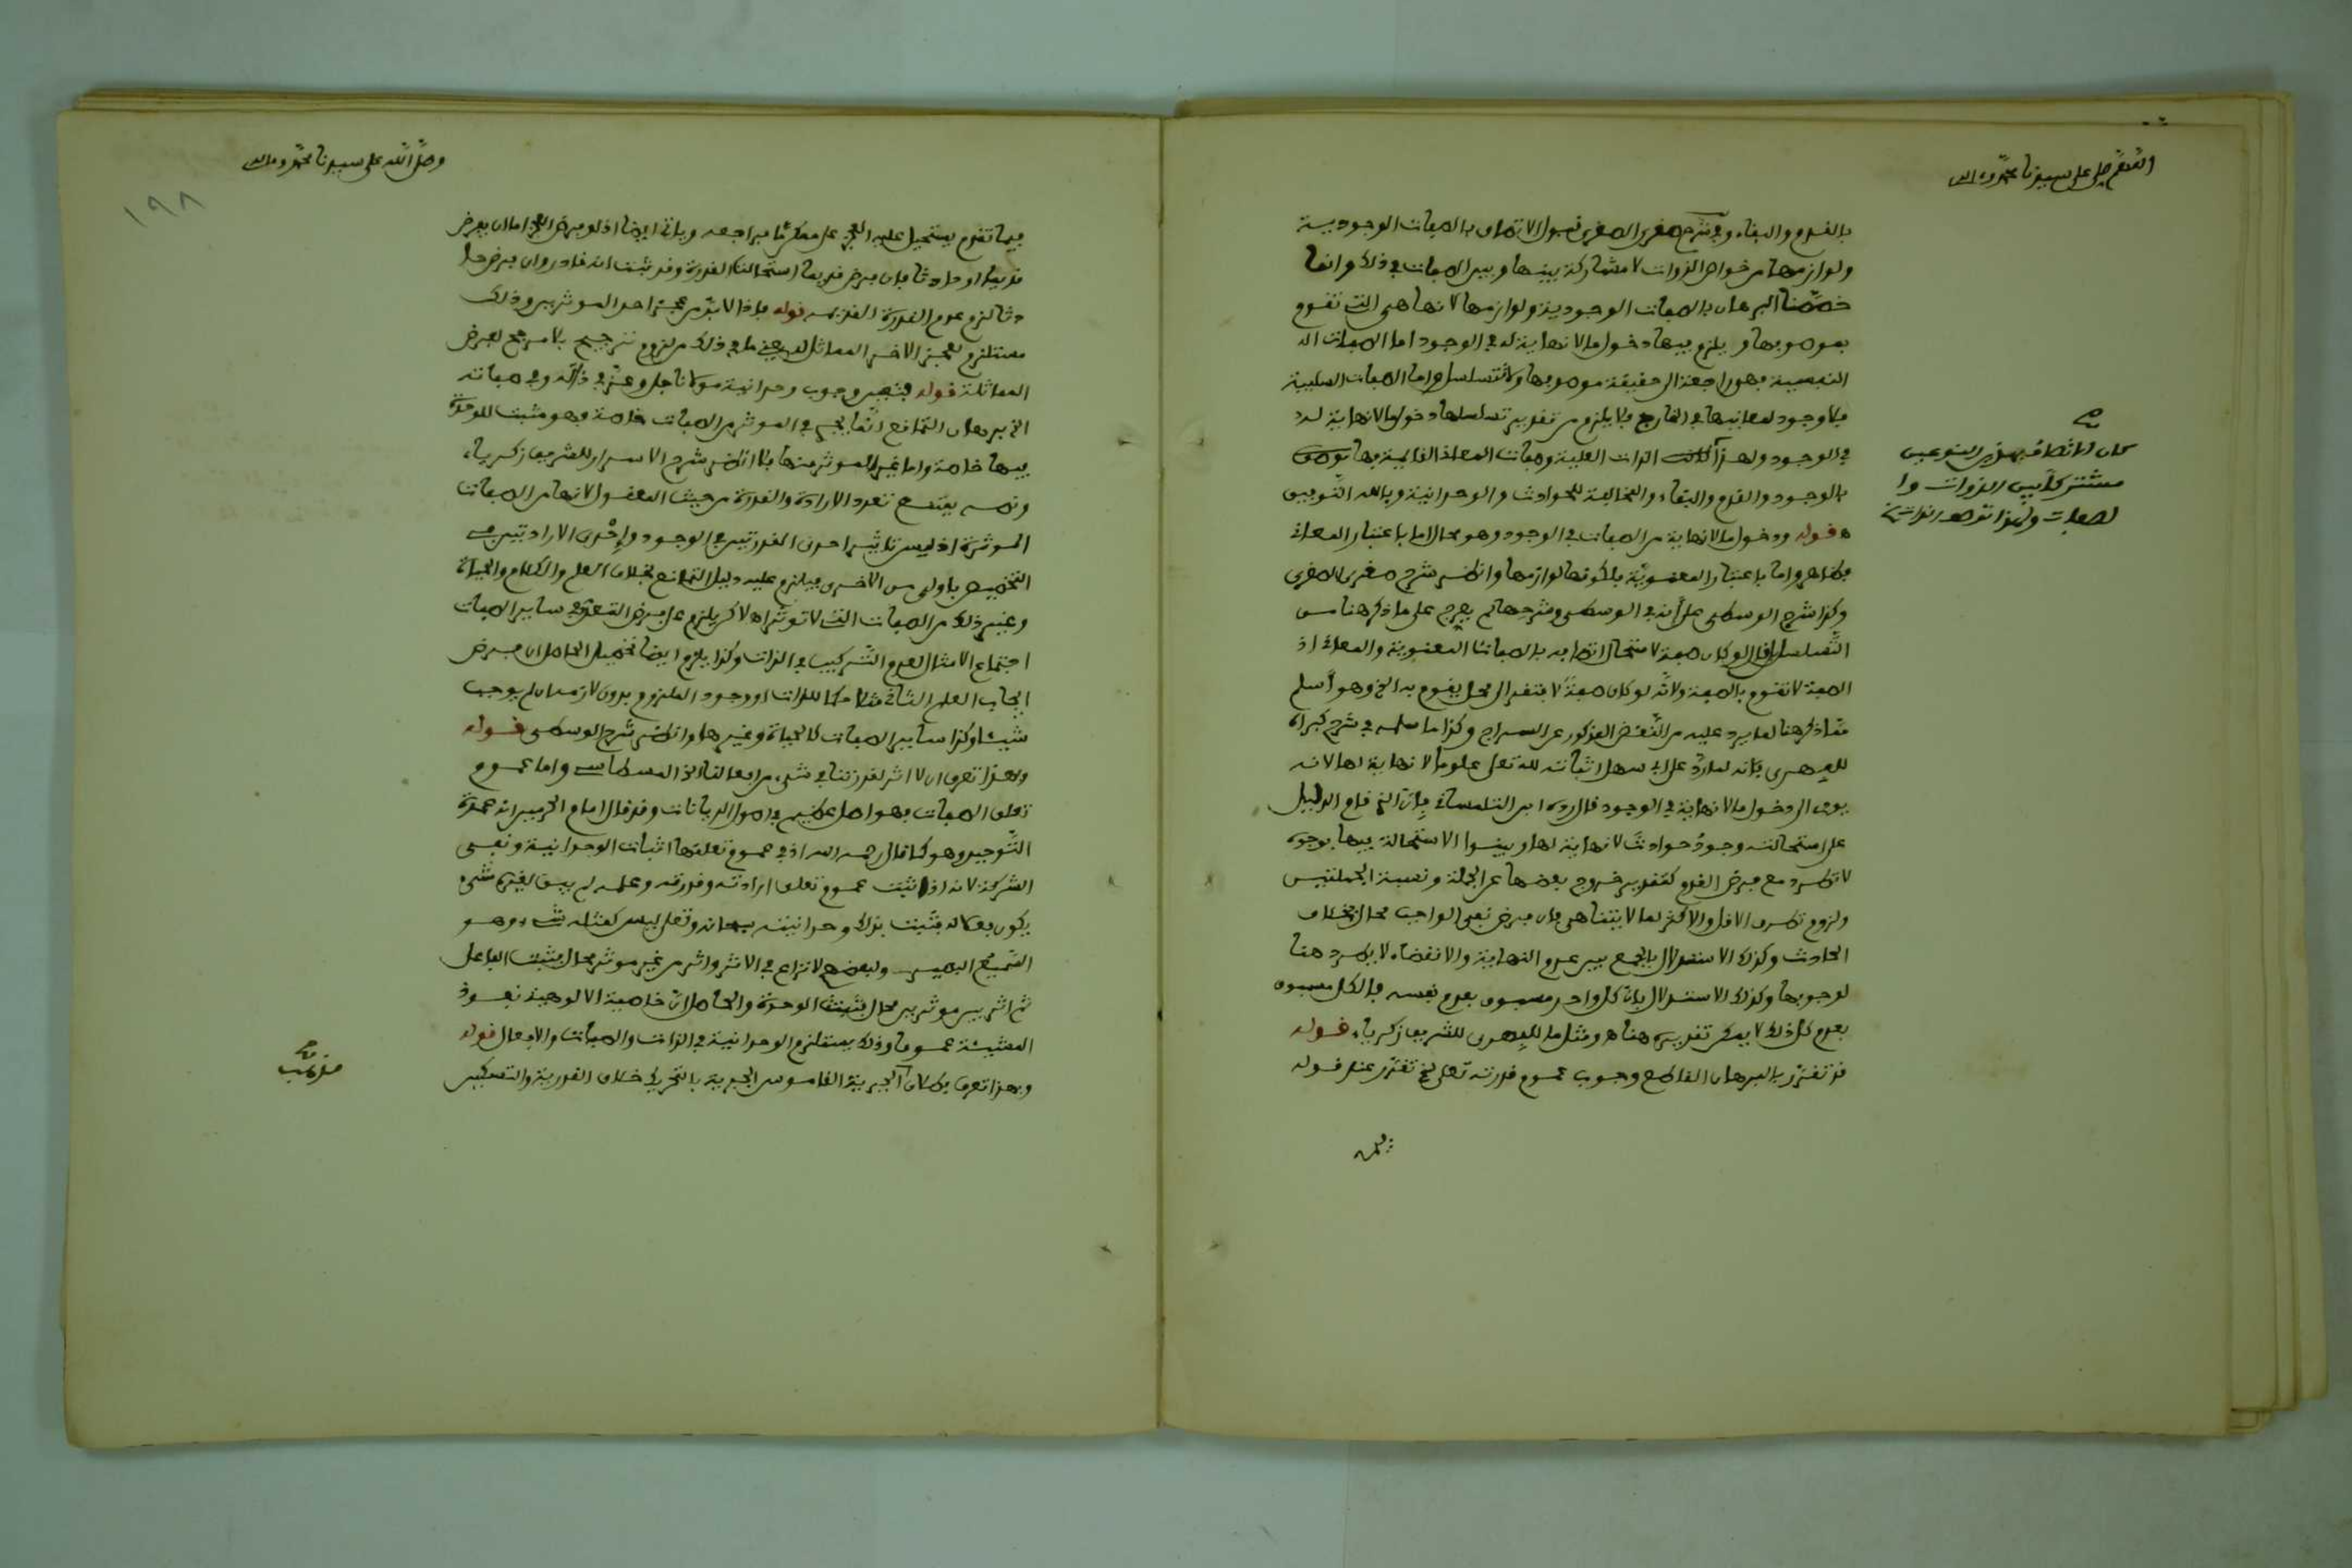 اللهم صل على سيدنا محمد وءاله
بالقدم والبقاء وفي شرح صغرى الصغرى قبول الاتصاف بالصفات الوجودية
ولوازمها من خواص الذوات لا مشاركة بينها وبين الصفات في ذلك وانما
خصصنا البرهان بالصفات الوجودية ولوازمها لانها هي التي تقوم
بموصوفها ويلزم فيها دخول ما لا نهاية له في الوجود اما الصفات
النفسية فهو راجعة الى حقيقة موصوفها ولا تتسلسل واما الصفات السلبية
فلا وجود لمعانيها في الخارج فلا يلزم من تقدير تسلسلها دخول ما لا نهاية له
في الوجود ولهذا كانت الذات العلية وصفات المعاني القائمة بها توصف
بالوجود والقدم والبقاء والمخالفة للحوادث والوحدانية وبالله التوفيق
قوله ودخول ما لا نهاية من الصفات في الوجود وهو محال اما باعتبار المعاني
فظاهر واما باعتبار المعنوية فلكونها لوازمها وانظر شرح صغرى الصغرى
وكذا شرح الوسطى على أنه في الوسطى وشرحها لم يعرج على ما ذكر هنا من
التسلسل قال لو كان صفة لاستحال اتصافه بالصفات المعنوية والمعاني اذ
الصفة لا تقوم بالصفة ولأنه لو كان صفة لافتقر الى محل يقوم به الخ وهو أسلم
مما ذكر هنا لما يرد عليه من النقض المذكور عن السراج وكذا ما سلمه في شرح كبراه
للفهري فانه لما رد على ابي سهل اثباته لله تعلى علوما لا نهاية لها لانه
يودي الى دخول ما لا نهاية في الوجود قال رده ابن التلمساني بان الذي قام الدليل
على استحالته وجود حوادث لا نهاية لها وبينوا الاستحالة فيها بوجوه
لا تطرد مع فرض القدم كتقدير خروج بعضها عن الجملة ونسبة الجملتين
ولزوم تطرق الاقل والاكثر لما لا يتناهى فان فرض نفي الواجب محال بخلاف
الحادث وكذلك الاستدلال بالجمع بين عدم النهاية والانقضاء لا يطرد هنا
لوجوبها وكذلك الاستدلال بان كل واحد مسبوق بعدم نفسه فالكل مسبوق
بعدم كل ذلك لا يمكن تقديره هنا ه ومثل ما للفهري للشريف زكرياء قوله
قد تقرر بالبرهان القاطع وجوب عموم قدرته تعلى الخ تقرر عند قوله
كان الاتصاف بهذين النوعين
مشتركا بين الذوات وا
لصفات
وصلى الله على سيدنا محمد وءاله
١٩٨
فيما تقدم يستحيل عليه العجز عن ممكن ما فراجعه وبانه ايضا اذ لو فرض العجز اما ان يفرض
قديما او حادثا فان فرض قديما استحالت القدرة وقد ثبت انه قادر وان فرض حا
دثا لزم عدم القدرة القديمة قوله فاذا لا بد من عجز احد الموثرين وذلك
مستلزم لعجز الاخر المماثل له يعني ما في ذلك من لزوم ترجيح بلا مرجح لفرض
المماثلة قوله فتعين وجوب وحدانية مولانا جل وعز في ذاته وفي صفاته
الخ برهان التمانع انما يجري في الموثر من الصفات خاصة وهو مثبت للوحدة
فيها خاصة واما غير الموثر منها فلا انظر شرح الاسرار للشريف زكرياء
ونصه يمتنع تعدد الارادة والقدرة من حيث المعقول لانها من الصفات
الموثرة اذ ليس تاثير احدى القدرتين في الوجود وإحدى الارادتين في
التخصيص باولى من الاخرى فيلزم عليه دليل التمانع بخلاف العلم والكلام والحياة
وغير ذلك من الصفات التي لا توثر اه لاكن يلزم على فرض التعدد في ساير الصفات
اجتماع الامثال لعدم التركيب في الذات وكذا يلزم ايضا تحصيل الحاصل ان فرض
ايجاب العلم الثاني مثلا حكما للذات او وجود الملزوم بدون لازمه ان لم يوجب
شيئا وكذا ساير الصفات كالحياة وغيرها وانظر شرح الوسطى قوله
وبهذا تعرف ان لا اثر لقدرتنا في شيء من افعالنا الخ المسطاسي واما عموم
تعلق الصفات فهو اصل عظيم في اصول الديانات وقد قال امام الحرمين انه عمدة
التوحيد وهو كما قال رحمه الله اذ في عموم تعلقها اثبات الوحدانية ونفي
الشركة لانه اذا ثبت عموم تعلق ارادته وقدرته وعلمه لم يبق لغيره شيء
يكون بعماله فثبت بذلك وحدانيته سبحانه وتعلى ليس كمثله شيء وهو
السميع البصير ولبعضهم لا نزاع في الاثر واثر من غير موثر محال فثبت الفاعل
ثم اثر بين موثرين محال فثبتت الوحدة والحاصل ان خاصية الالوهية نفوذ
المشيئة عموما وذلك يستلزم الوحدانية في الذات والصفات والافعال قوله
وبهذا تعرف بطلان الجبرية القاموس الجبرية بالتحريك خلاف القدرية والتسكين